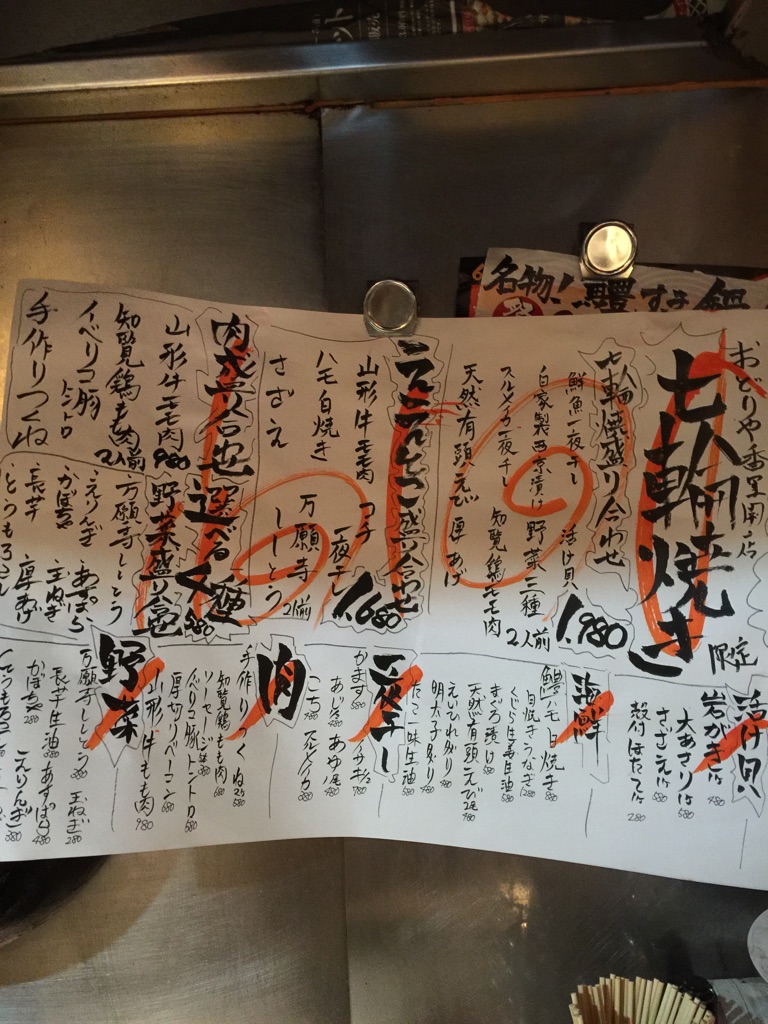 名物!鱧すき鍋
おどりや番里開店
七輪焼き
限定
七輪焼盛り合わせ
鮮魚一夜干し 活け貝
自家製西京漬け 野菜三種
スルメイカ一夜干し 知覧鶏モモ肉
天然有頭えび 厚あげ
2人前
1,980
ええとこ盛り合わせ
山形牛モモ肉 コチ一夜干し
ハモ白焼き 万願寺ししとう
さざえ
2人前
1,680
肉盛り合せ
山形牛モモ肉
知覧鶏もも肉
イベリコ豚トントロ
手作りつくね
2人前
980
選べる
野菜盛り合せ
万願寺ししとう
えりんぎ あすぱら
かぼちゃ 玉ねぎ
長芋 厚あげ
とうもろこし
活け貝
岩がき 480
大あさり 580
さざえ 580
殻付ほたて 280
海鮮
鱧ハモ白焼き 580
白焼きうなぎ 1280
くじら生姜生醤油 580
まぐろ漬け 580
天然有頭えび2尾 480
えいひれ炙り 480
明太子炙り 480
一夜干し
かます 580
あじ 580 あゆ1尾
こち 380 スルメイカ 380
肉
手作りつくね2ケ
知覧鶏もも肉 680
ソーセージ
イベリコ豚トントロ 680
厚切りベーコン 580
山形牛もも肉 980
野菜
万願寺ししとう 玉ねぎ 280
長芋生醤油 380 あすぱら 480
かぼちゃ 280 えりんぎ 380
とうもろこし